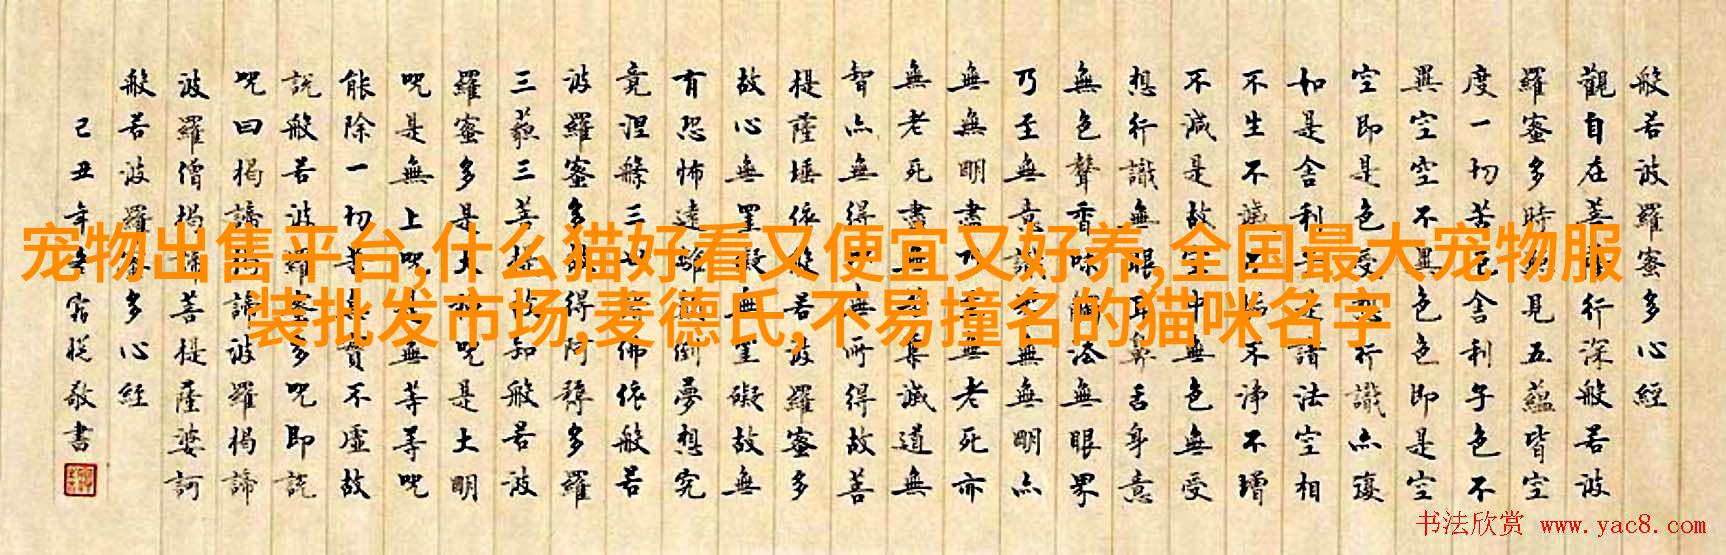 般若波羅蜜多心經
觀自在菩薩行深般若波
羅蜜多時照見五蘊皆空
度一切苦厄舍利子色不
異空空不異色色即是空
空即是色受想行識亦復
如是舍利子是諸法空相
不生不滅不垢不淨不增
不減是故空中無色無受
想行識無眼耳鼻舌身意
無色聲香味觸法無眼界
乃至無意識界無無明亦
無無明盡乃至無老死亦
無老死盡無苦集滅道無
智亦無得以無所得故菩
提薩埵依般若波羅蜜多
故心無罣礙無罣礙故無
有恐怖遠離顛倒夢想究
竟涅槃三世諸佛依般若
波羅蜜多故得阿耨多羅
三藐三菩提故知般若波
羅蜜多是大神呪是大明
呪是無上呪是無等等呪
能除一切苦真實不虛故
說般若波羅蜜多呪即說
呪曰揭諦揭諦波羅揭諦
波羅僧揭諦菩提薩婆訶
般若波羅蜜多心經
己丑年敬書
宠物出售平台,什么猫好看又便宜又好养,全国最大宠物服
装批发市场,麦德氏,不易撞名的猫咪名字
书法欣赏 www.yac8.com